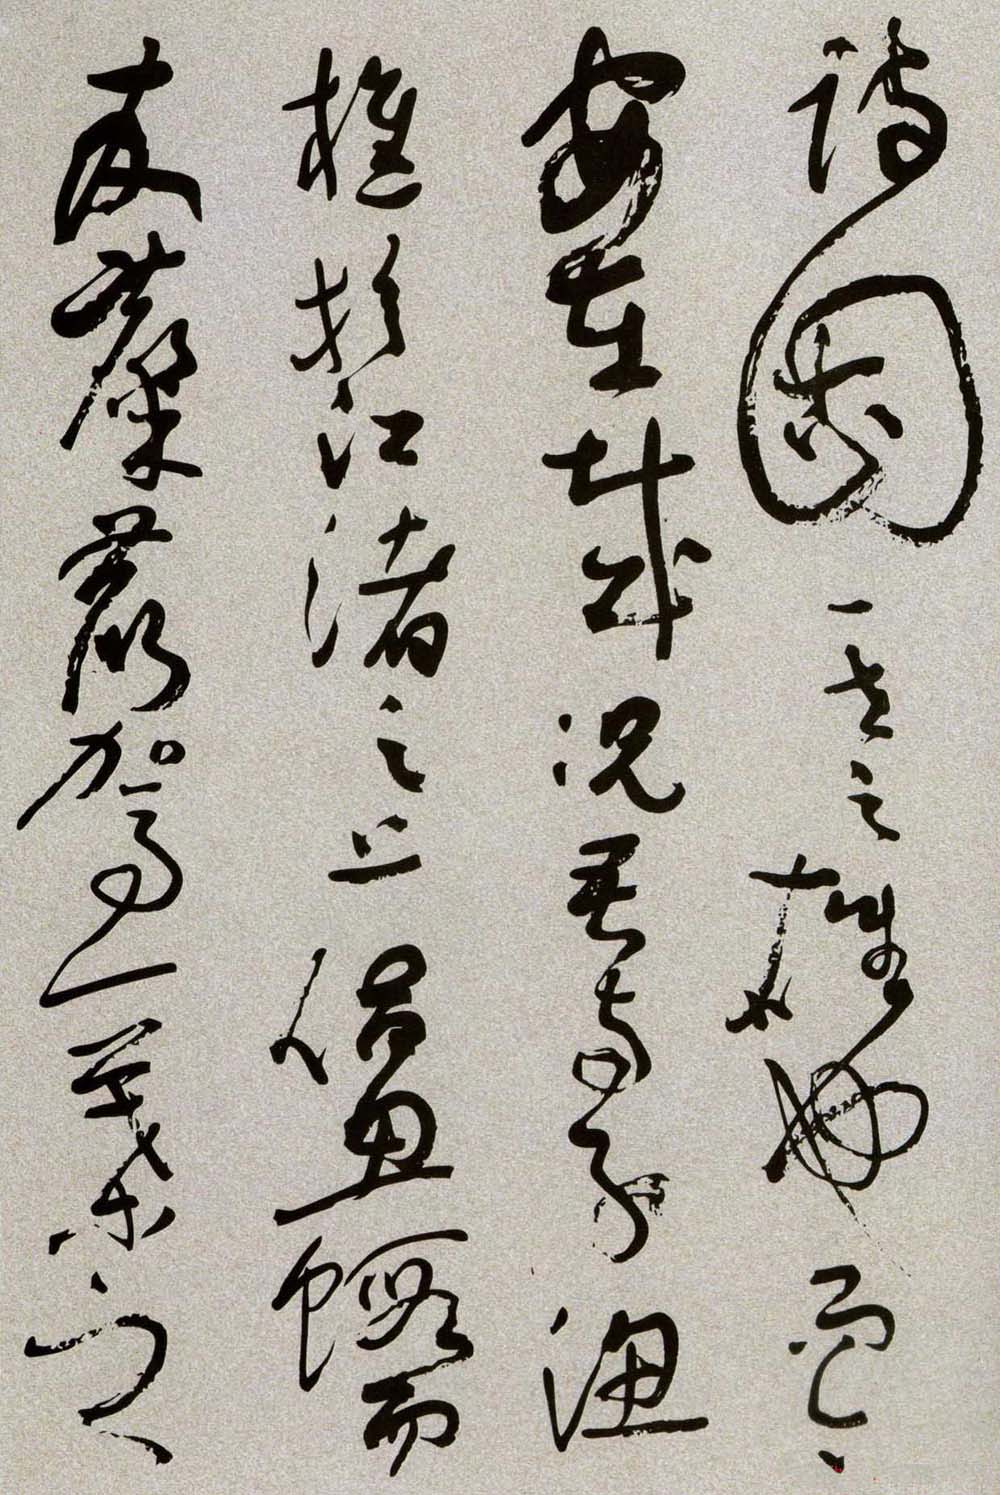 詩固一世之雄也而今
安在哉況吾與子漁
樵於江渚之上侶魚蝦而
友麋鹿駕一葉之